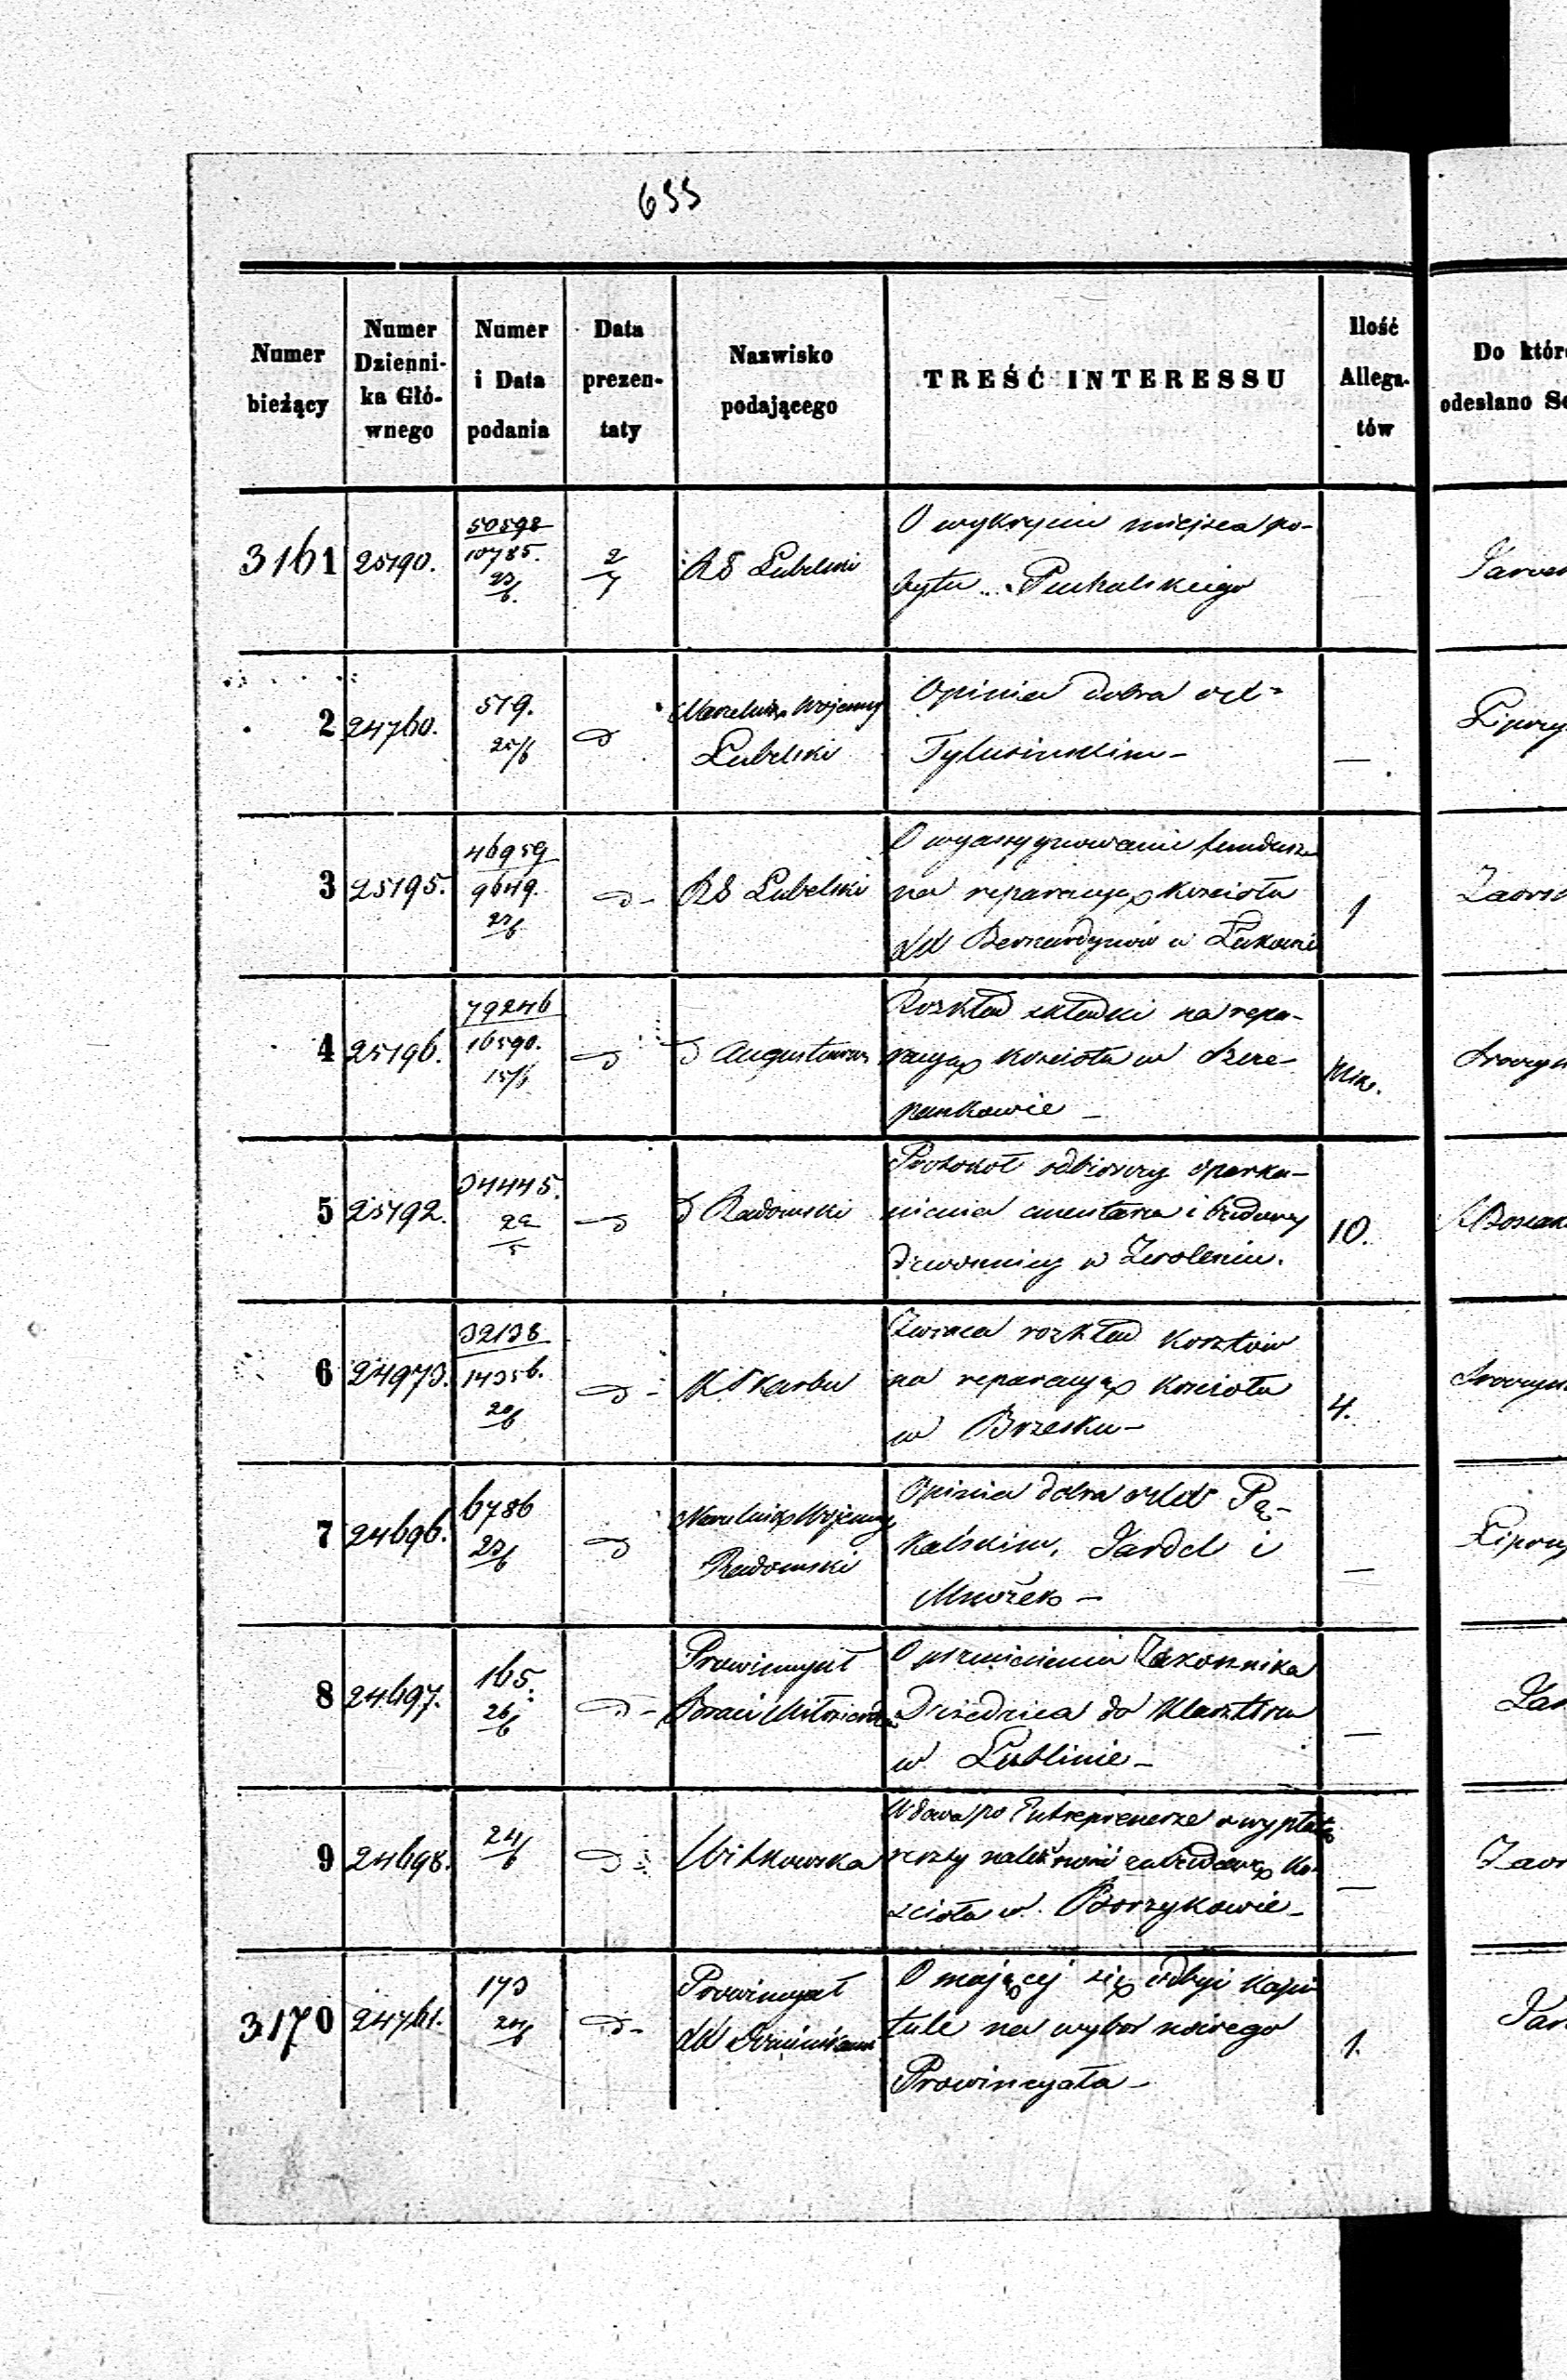 655
Numer bieżący
Numer Dzienni- ka Głó- wnego
Numer i Data podania
Data prezen- taty
Nazwisko podającego
TREŚĆ INTERESSU
Ilość Allega- tów
Do któr
odesłano Se
3161 25190. 50598 10785. 23/6. 2/7 RG Lubelski
O wykryciu miejsca po-
bytu ... Puchalskiego
2 24760. 519. 25/6 d Naczelnik Wojenny
Lubelski
Opinia dobra o xd
Tylusińskim -
—
3 25195. 46959 9649. 23/6 d- RG Lubelski
O wyassygnowanie funduszu
na reparacyą kościoła
dd Bernardynów w Łukowie
1
4 25196. 79246 16590. 15/6 d d Augustowski
Rozkład składki na repa-
racyą kościoła w Szcze-
pankowie -
5 25192. 34445. 22/5 d d Radomski
Protokół odbiorczy oparka-
nienia cmentarza i budowy
dzwonnicy w Zwoleniu.
10.
6 24973. 32138 14356. 20/6 d- K Skarbu
Zwraca rozkład kosztów
na reparacyą kościoła
w Brzesku -
4.
7 24696. 6786 23/6 d Naczelnik Wojenny
Radomski
Opinia dobra o xdd Pę-
kalskim, Jardel i
Mnożek -
—
8 24697. 165. 26/6 d- Prowincyał
Braci Miłosierdzia
O przeniesienie Zakonnika
Dziedzica do Klasztoru
w Lublinie -
—
9 24698. 24/6 d Witkowska
Wdowa po Entreprenerze o wypłatę
reszty należności za budowę ko-
ścioła w Borzykowie -
—
3170 24761. 173 24/6 d- Prowincyał
dd Dominikanów
O mającej się odbyć kapi
tule na wybór nowego
Prowincyała -
1.